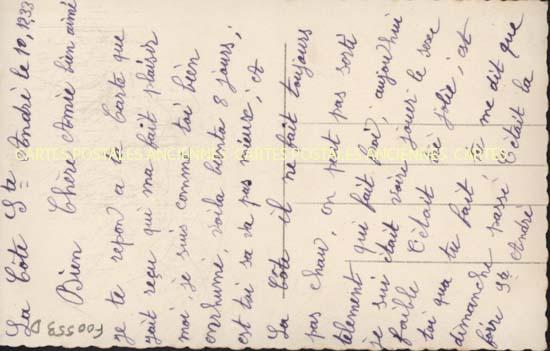 La Côte St = André le 10,1,233
Bien Chère Amiée bien aimé
je te repond a ta Carte que
jait reçu qui ma fait plaisir
moi, je suis comme toi bien
enrhumé, voila bientot 8 jours,
est toi sa va pas mieux, et
La Côte il ne fait toujours
pas chaud, on peut pas sorti
telement qui fait froi, aujourd'hui
je sui était voire jouer le sexe
faible c'était si jolie, et
toi qua tu fait
dimanche passé me dit que
foire St André c'était la
CARTES POSTALES ANCIENNES
CARTES POSTALES ANCIENNES
F00553 D